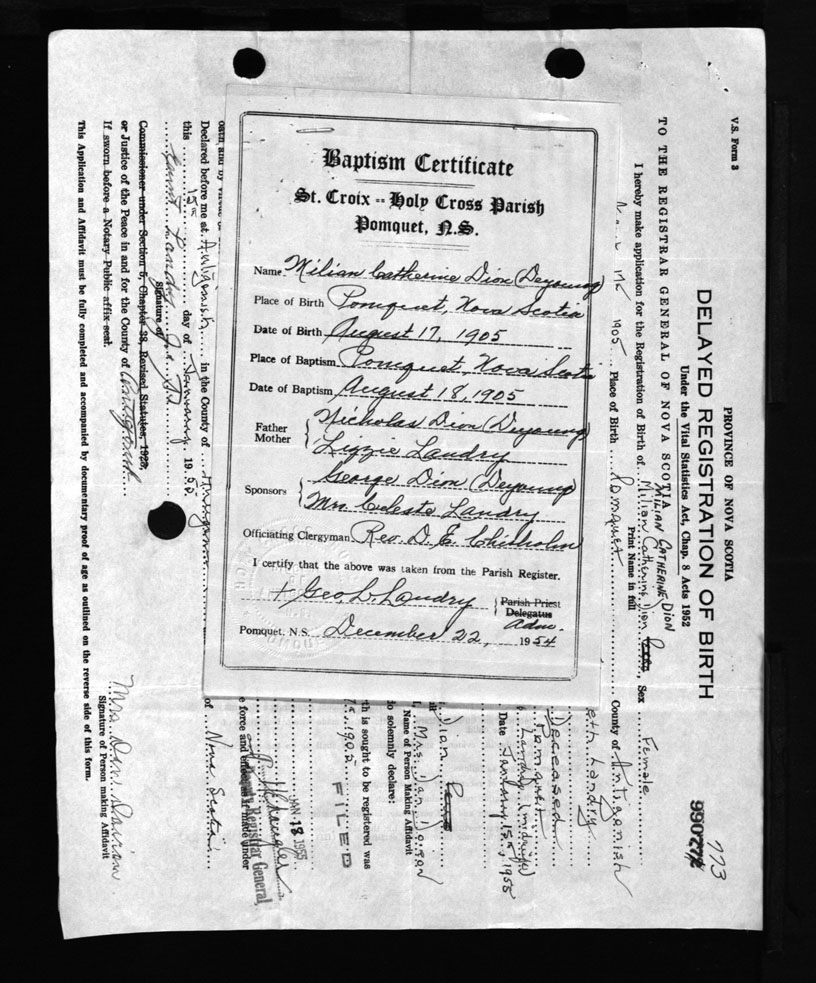 Baptism Certificate
St. Croix -- Holy Cross Parish
Pomquet, N.S.
Name Milian Catherine Dion (Deyoung)
Place of Birth Pomquet, Nova Scotia
Date of Birth August 17, 1905
Place of Baptism Pomquet, Nova Scotia
Date of Baptism August 18, 1905
Father Nicholas Dion (Deyoung)
Mother Lizzie Landry
Sponsors George Dion (Deyoung)
Mrs Celeste Landry
Officiating Clergyman Rev. D. E. Chisholm
I certify that the above was taken from the Parish Register.
+ Geo. L. Landry Parish Priest
Delegatus
adm.
Pomquet, N.S. December 22, 1954
V.S. Form 3
PROVINCE OF NOVA SCOTIA
DELAYED REGISTRATION OF BIRTH
Under the Vital Statistics Act, Chap. 8 Acts 1952
773
990274
TO THE REGISTRAR GENERAL OF NOVA SCOTIA
MILIAN CATHERINE DION
I hereby make application for the Registration of Birth of Milian Catherine Dion, Sex Female
Print Name in full
1905 Place of Birth Pomquet County of Antigonish
eth Landry
Deceased
Pomquet
Landry (midwife)
Date January 15, 1955
Dion
Name of Person Making Affidavit
I, Mrs. Dan Doiron
do solemnly declare:
rth is sought to be registered was
FILED
JAN 18 1955
Registrar General,
e force and effect as if made under
oath and by virtue of
Declared before me at Antigonish in the County of Antigonish of Nova Scotia
this 15 day of January 1955
Signature of
Commissioner under Section 5, Chapter 38, Revised Statutes, 1923,
or Justice of the Peace in and for the County of Antigonish
If sworn before a Notary Public affix seal.
Mrs. Dan Doiron
Signature of Person making Affidavit
This Application and Affidavit must be fully completed and accompanied by documentary proof of age as outlined on the reverse side of this form.